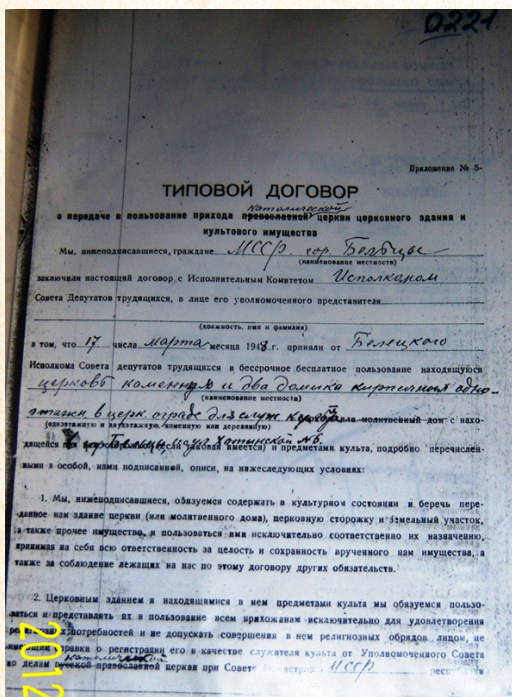 0221
Приложение № 5-
ТИПОВОЙ ДОГОВОР
католической
о передаче в пользование прихода православной церкви церковного здания и
культового имущества
Мы, нижеподписавшиеся, граждане МССР. гор. Бельцы
(наименование местности)
заключили настоящий договор с Исполнительным Комитетом Исполкаом
Совета Депутатов трудящихся, в лице его уполномоченного представителя
(должность, имя и фамилия)
в том, что 17 числа марта месяца 1948 г. приняли от Белецкого
Исполкома Совета депутатов трудящихся в бессрочное бесплатное пользование находящуюся
церковь каменную и два домика кирпичных одно-
(наименование местности)
этажн в церк ограде для служ или молитвенный дом с нахо-
(одноэтажную и двухэтажную, каменную или деревянную)
дящейся гор Бельцы по ул Хотинской № (если таковая имеется) и предметами культа, подробно перечислен-
ными в особой, нами подписанной, описи, на нижеследующих условиях:
1. Мы, нижеподписавшиеся, обязуемся содержать в культурном состоянии и беречь пере-
данное нам здание церкви (или молитвенного дома), церковную сторожку и земельный участок,
а также прочее имущество, и пользоваться ими исключительно соответственно их назначению,
принимая на себя всю ответственность за целость и сохранность врученного нам имущества, а
также за соблюдение лежащих на нас по этому договору других обязательств.
2. Церковным зданием и находящимися в нем предметами культа мы обязуемся пользо-
ваться и представлять их в пользование всем прихожанам исключительно для удовлетворения
религиозных потребностей и не допускать совершения в нем религиозных обрядов лицом, не
имеющим справки о регистрации его в качестве служителя культа от Уполномоченного Совета
католической
по делам русской православной церкви при Совете Министров МССР республики
2012